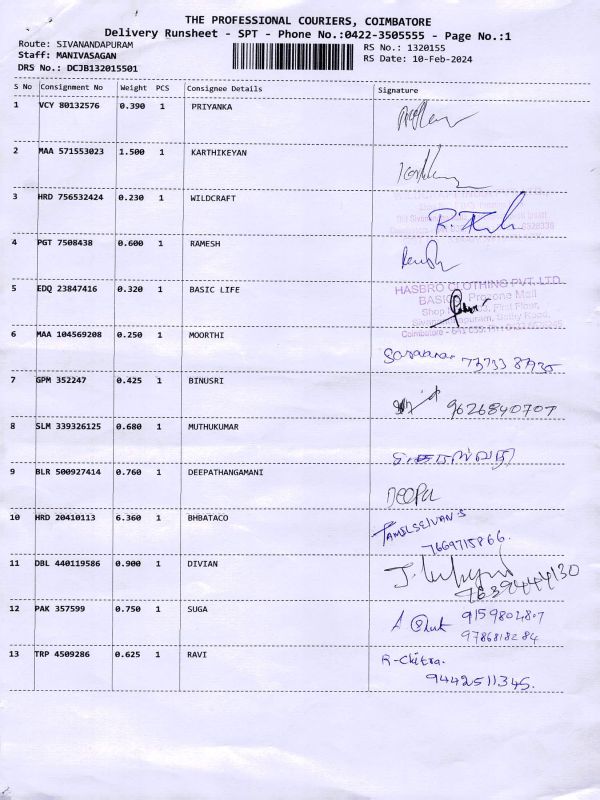 THE PROFESSIONAL COURIERS, COIMBATORE
Delivery Runsheet - SPT - Phone No.:0422-3505555 - Page No.:1
Route: SIVANANDAPURAM
RS No.: 1320155
Staff: MANIVASAGAN
RS Date: 10-Feb-2024
DRS No.: DCJB132015501
S No Consignment No Weight PCS Consignee Details Signature
1 VCY 80132576 0.390 1 PRIYANKA
2 MAA 571553023 1.500 1 KARTHIKEYAN
3 HRD 756532424 0.230 1 WILDCRAFT
4 PGT 7508438 0.600 1 RAMESH
5 EDQ 23847416 0.320 1 BASIC LIFE
HASBRO CLOTHING PVT. LTD
6 MAA 104569208 0.250 1 MOORTHI
7 GPM 352247 0.425 1 BINUSRI
9626840707
8 SLM 339326125 0.680 1 MUTHUKUMAR
9 BLR 500927414 0.760 1 DEEPATHANGAMANI
10 HRD 20410113 6.360 1 BHBATACO
TAMILSELVAN S
7669715866.
11 DBL 440119586 0.900 1 DIVIAN
7639444130
12 PAK 357599 0.750 1 SUGA
9159802807
9786818284
13 TRP 4509286 0.625 1 RAVI
R-Chitra.
9442511345.